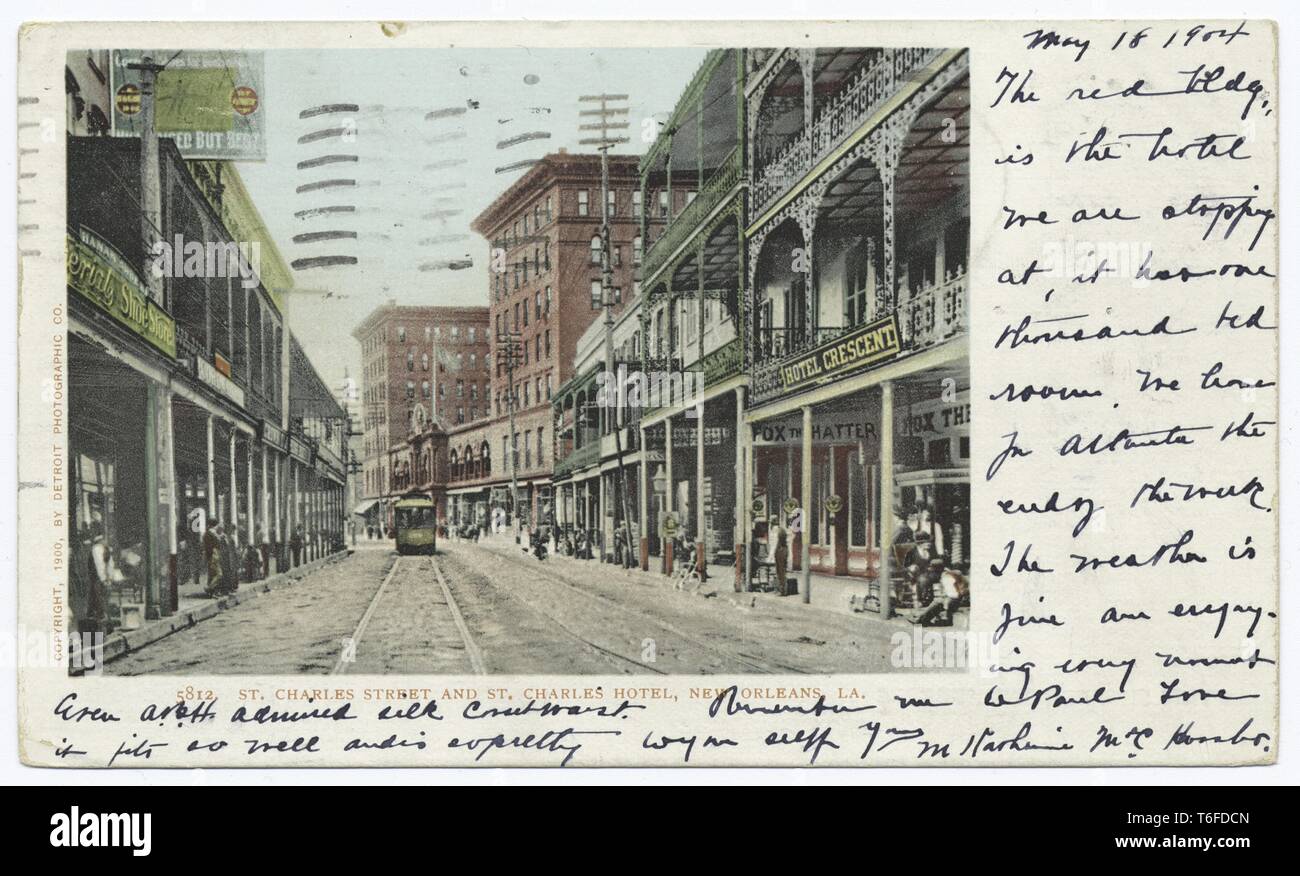 May 18 1904
The red bldg,
is the hotel
we are stopping
at, it has one
thousand bed
room. We have
In Atlanta the
end of the week.
The weather is
fine am enjoy-
ing every moment
HANAN
Shoe Store
BUT BEST
HOTEL CRESCENT
FOX THE HATTER
FOX THE
COPYRIGHT, 1900, BY DETROIT PHOTOGRAPHIC CO.
5812. ST. CHARLES STREET AND ST. CHARLES HOTEL, NEW ORLEANS, LA.
admired silk waist. Remember me to Paul Love
it fits so well and is so pretty
M Katherine
alamy
Image ID: T6FDCN
www.alamy.com